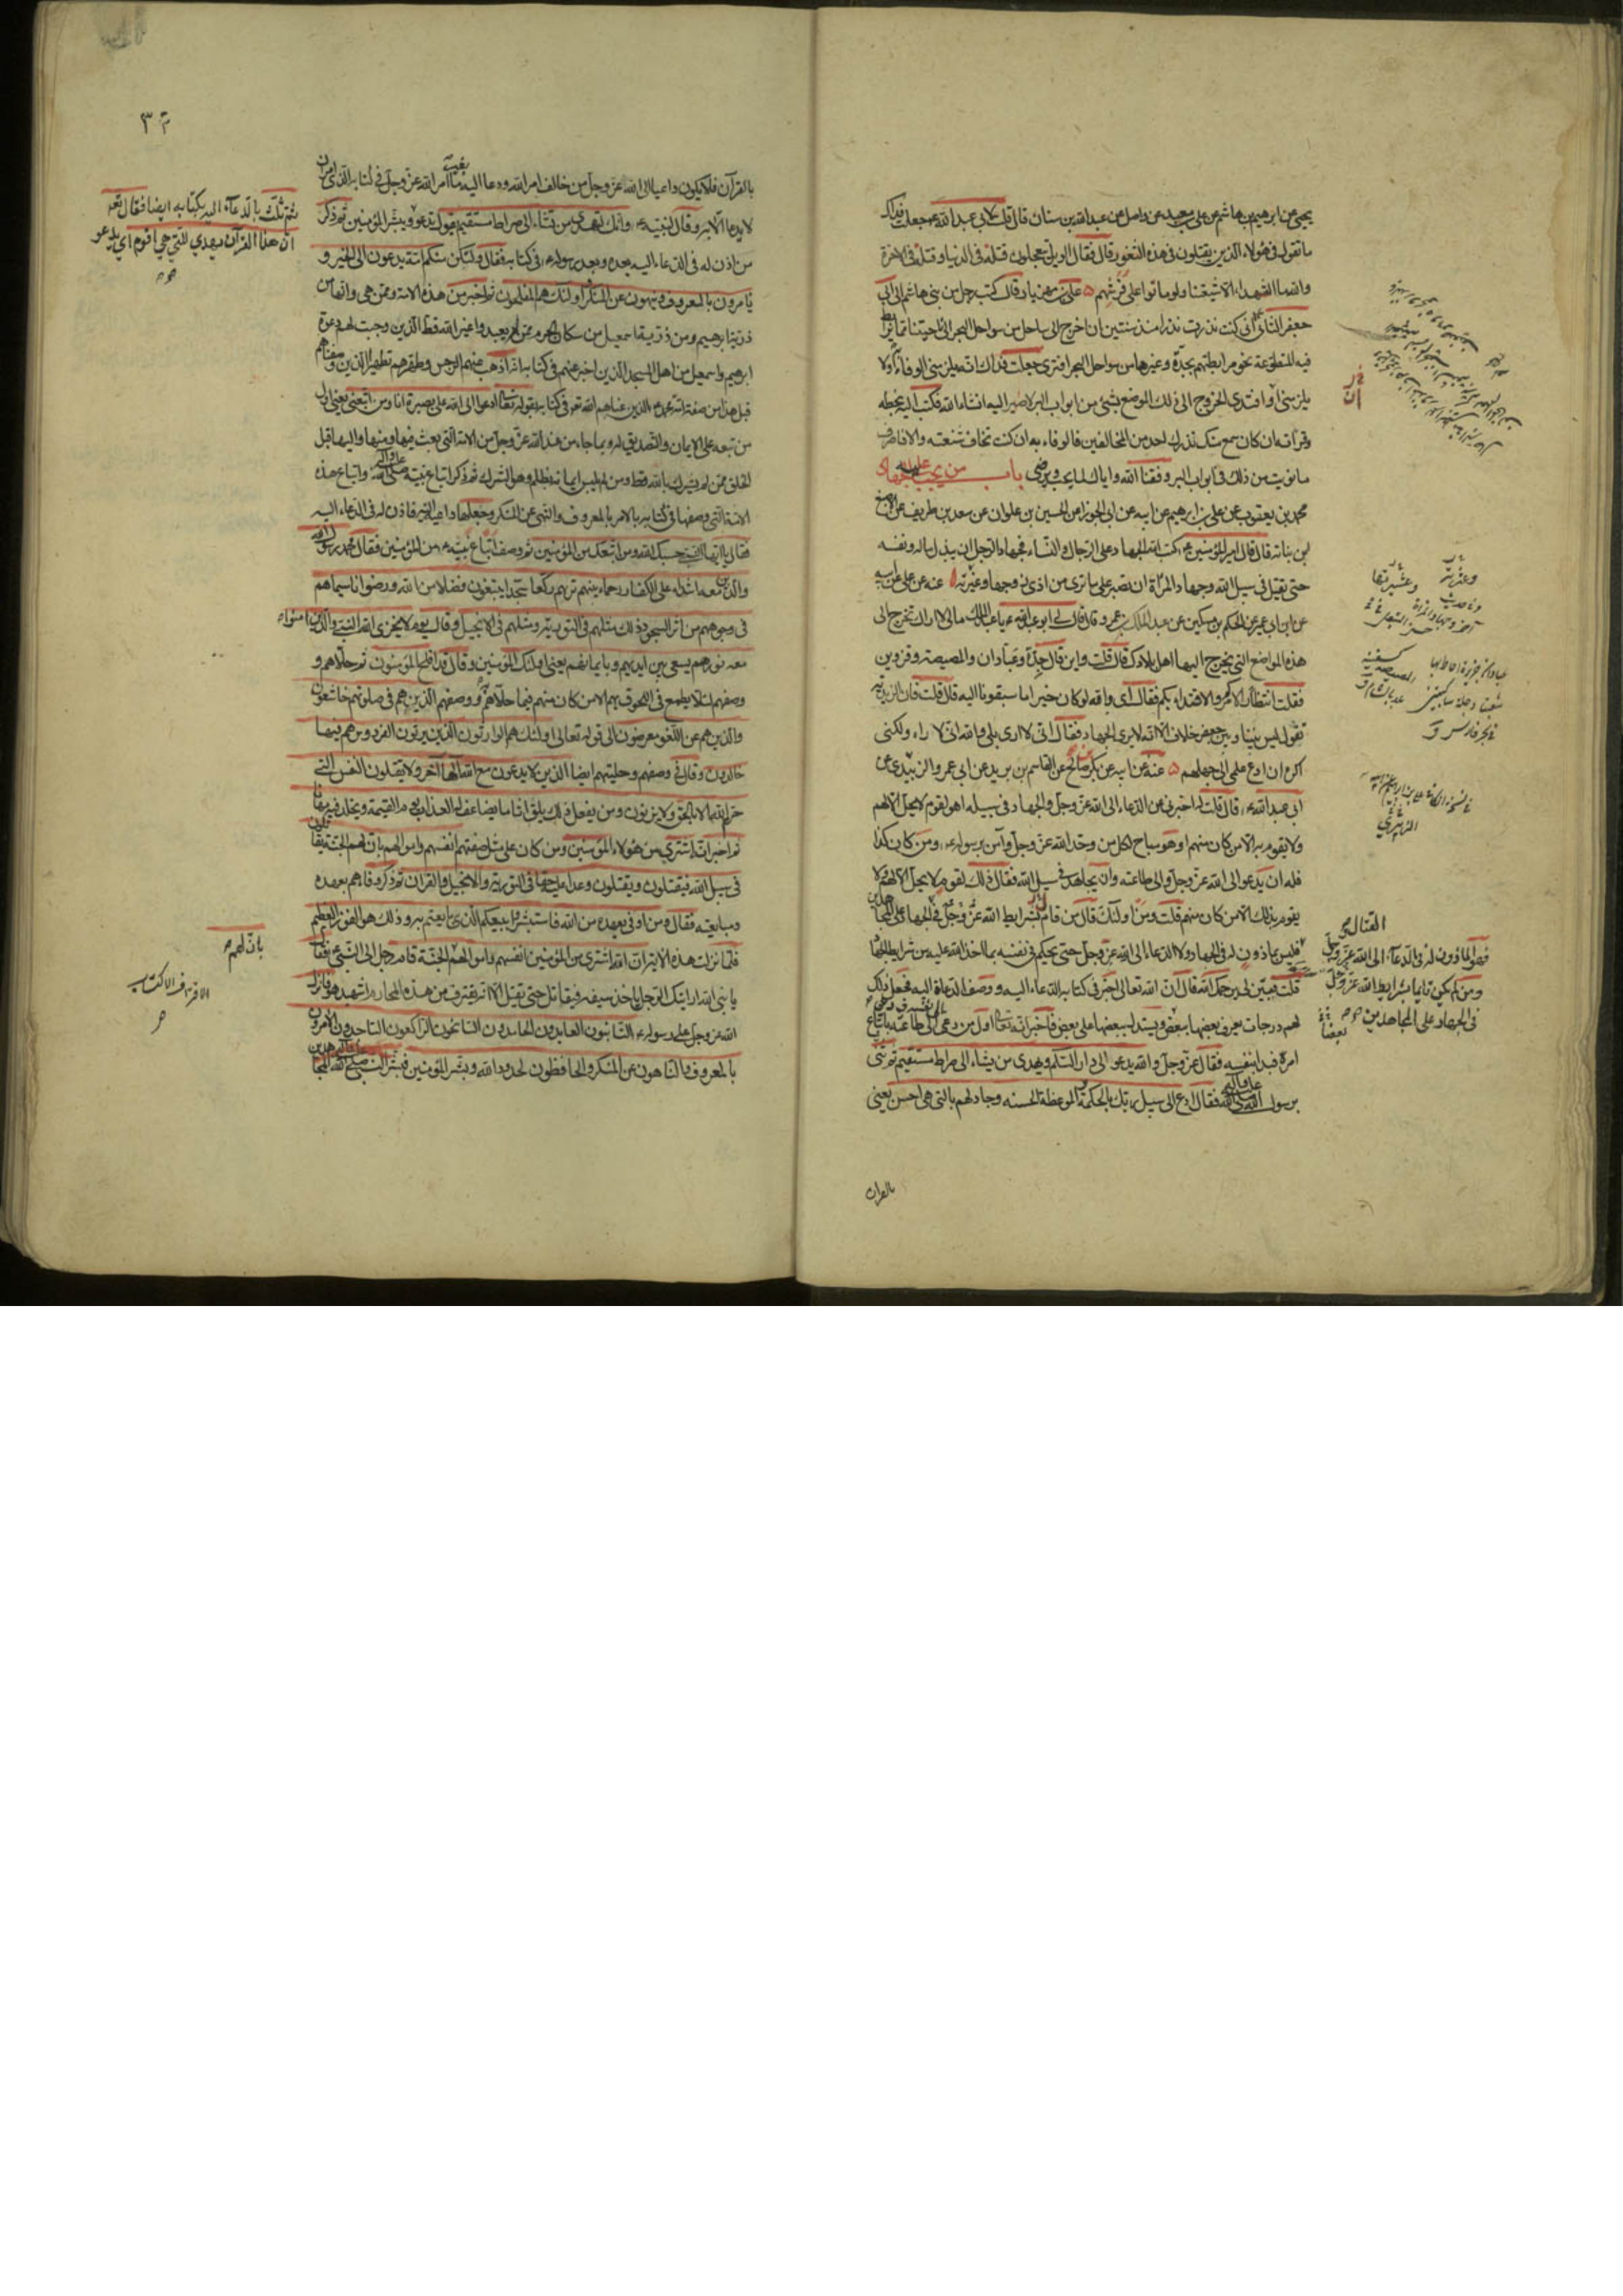 يحيى عن ابرهيم بن هاشم عن علي بن معبد عن واصل عن عبد الله بن سنان قال قلت لابي عبد الله ع جعلت فداك
ما تقول في هؤلاء الذين يقتلون في هذه الثغور قال فقال الويل يتعجلون قتلة في الدنيا وقتلة في الاخرة
والله ما الشهداء الا شيعتنا ولو ماتوا على فرشهم ٥ علي بن مهزيار قال كتب رجل من بني هاشم الى ابي
جعفر الثاني ع اني كنت نذرت نذرا منذ سنتين ان اخرج الى ساحل من سواحل البحر الى ناحيتنا مما يرابط
فيه المتطوعة نحو مرابطتهم بجدة وغيرها من سواحل البحر افترى جعلت فداك انه يلزمني الوفاء به او لا
يلزمني او افتدي الخروج الى ذلك الموضع بشئ من ابواب البر لاصير اليه انشاء الله فكتب اليه بخطه
وقرأته ان كان سمع منك نذرك احد من المخالفين فالوفاء به ان كنت تخاف شنعته والا فاصرف
ما نويت من ذلك في ابواب البر وفقنا الله واياك لما يحب ويرضى باب من يجب عليه الجهاد
محمد بن يعقوب عن علي بن ابرهيم عن ابيه عن ابي الجوزا عن الحسين بن علوان عن سعد بن طريف عن الاصبغ
بن نباته قال قال امير المؤمنين ع كتب الله الجهاد على الرجال والنساء فجهاد الرجل ان يبذل ماله ونفسه
حتى يقتل في سبيل الله وجهاد المرأة ان تصبر على ما ترى من اذى زوجها وغيرته عنه عن علي عن ابيه
عن ابن ابي عمير عن الحكم بن مسكين عن عبد الملك بن عمرو قال قال لي ابو عبد الله ع يا عبد الملك مالي لا اراك تخرج الى
هذه المواضع التي يخرج اليها اهل بلادك قال قلت واين قال جدة وعبادان والمصيصة وقزوين
فقلت انتظارا لامركم والاقتداء بكم فقال اي والله لو كان خيرا ما سبقونا اليه قال قلت فان الزيدية
تقول ليس بيننا وبين جعفر خلاف الا انه لا يرى الجهاد فقال اني لا ارى بلى والله اني لاراه ولكني
اكره ان ادع علمي الى جهلهم ٥ عنه عن ابيه عن بكر بن صالح عن القاسم بن بريد عن ابي عمرو الزبيدي عن
ابي عبد الله ع قال قلت له اخبرني عن الدعاء الى الله عز وجل والجهاد في سبيله اهو لقوم لا يحل الا لهم
ولا يقوم به الا من كان منهم او هو مباح لكل من وحد الله عز وجل وآمن برسوله ع ومن كان كذا
فله ان يدعو الى الله عز وجل والى طاعته وان يجاهد في سبيل الله فقال ذلك لقوم لا يحل الا لهم ولا
يقوم بذلك الا من كان منهم قلت ومن اولئك قال من قام بشرايط الله عز وجل في القتال والجهاد على المجاهدين
فهو المأذون له في الدعاء الى الله عز وجل
ومن لم يكن قايما بشرايط الله عز وجل
في الجهاد على المجاهدين
فليس بمأذون له في الجهاد ولا الدعاء الى الله عز وجل حتى يحكم في نفسه بما اخذ الله عليه من شرايط الجهاد
قلت فبين لي يرحمك الله قال ان الله تعالى اخبر في كتابه الدعاء اليه ووصف الدعاة اليه فجعل ذلك
لهم درجات يعرف بعضها بعضا ويستدل ببعضها على بعض فاخبر انه تعالى اول من دعى الى نفسه ودعى الى طاعته باتباع
امره فبدأ بنفسه فقال عز وجل والله يدعو الى دار السلام ويهدي من يشاء الى صراط مستقيم ثم ثنى
برسول الله صلى الله عليه وآله فقال ادع الى سبيل ربك بالحكمة والموعظة الحسنه وجادلهم بالتي هي احسن يعني
بالقران
بالقرآن فلا يكون داعيا الى الله عز وجل من خالف امر الله ودعا اليه بغير ما امر الله عز وجل في كتابه الذي امر ان
لا يدعا الا به وقال لنبيه ع وانك لتهدي من تشاء الى صراط مستقيم يقول تدعو ويبشر المؤمنين ثم ذكر
ثم ثلث بالدعاء اليه بكتابه ايضا فقال تعا
ان هذا القرآن يهدي للتي هي اقوم اي يدعو
من اذن له في الدعاء اليه بعده وبعد رسوله ع في كتابه فقال ولتكن منكم امة يدعون الى الخير و
يامرون بالمعروف وينهون عن المنكر واولئك هم المفلحون ثم اخبر عن هذه الامة وممن هي وانها من
ذرية ابرهيم ومن ذرية اسمعيل من سكان الحرم ممن لم يعبدوا غير الله قط الذين وجبت لهم دعوة
ابرهيم واسمعيل من اهل المسجد الذين اخبر عنهم في كتابه انه اذهب عنهم الرجس وطهرهم تطهيرا الذين وصفناهم
قبل هذا من صفة امة محمد الذين عناهم الله تعا في كتابه بقوله تعالى ادعوا الى الله على بصيرة انا ومن اتبعني يعني اول
من تبعه على الايمان والتصديق له وبما جاء من عند الله عز وجل من الامة التي بعث فيها ومنها واليها قبل
الخلق ممن لم يشرك بالله قط ومن لم يلبس ايمانه بظلم وهو الشرك ثم ذكر اتباع نبيه صلى الله عليه وآله واتباع هذه
الامة التي وصفها في كتابه بالامر بالمعروف والنهي عن المنكر وجعلها داعية اليه فاذن له في الدعاء اليه
فقال يا ايها النبي حسبك الله ومن اتبعك من المؤمنين ثم وصف اتباع نبيه ع من المؤمنين فقال محمد رسول الله
والذين معه اشداء على الكفار رحماء بينهم تريهم ركعا سجدا يبتغون فضلا من الله ورضوانا سيماهم
في وجوههم من اثر السجود ذلك مثلهم في التورية ومثلهم في الانجيل وقال يوم لا يخزى الله النبي والذين امنوا
معه نورهم يسعى بين ايديهم وبايمانهم يعني اولئك المؤمنين وقال قد افلح المؤمنون ثم حلاهم و
وصفهم لئلا يطمع في اللحوق بهم الا من كان منهم فيما حلاهم ووصفهم الذين هم في صلوتهم خاشعون
والذين هم عن اللغو معرضون الى قوله تعالى اولئك هم الوارثون الذين يرثون الفردوس هم فيها
خالدون وقال في وصفهم وحليتهم ايضا الذين لا يدعون مع الله الها آخر ولا يقتلون النفس التي
حرم الله الا بالحق ولا يزنون ومن يفعل ذلك يلق اثاما يضاعف له العذاب يوم القيمة ويخلد فيه مهانا
ثم اخبر انه اشترى من هؤلاء المؤمنين ومن كان على مثل صفتهم انفسهم واموالهم بان لهم الجنة يقاتلون
في سبيل الله فيقتلون ويقتلون وعدا عليه حقا في التورية والانجيل والقران ثم ذكر وفاءهم بعهده
ومبايعته فقال ومن اوفى بعهده من الله فاستبشروا ببيعكم الذي بايعتم به وذلك هو الفوز العظيم
فلما نزلت هذه الاية ان الله اشترى من المؤمنين انفسهم واموالهم الجنة قام رجل الى النبي ع فقال
بان لهم
يا نبي الله ارايتك الرجل ياخذ سيفه فيقاتل حتى يقتل الا انه يقترف من هذه المحارم اشهيد هو فانزل
الاقتراف الاكتساب
الله عز وجل على رسوله ع التائبون العابدون الحامدون السائحون الراكعون الساجدون الامرون
بالمعروف والناهون عن المنكر والحافظون لحدود الله وبشر المؤمنين فبشر النبي صلى الله عليه وآله المجاهدين